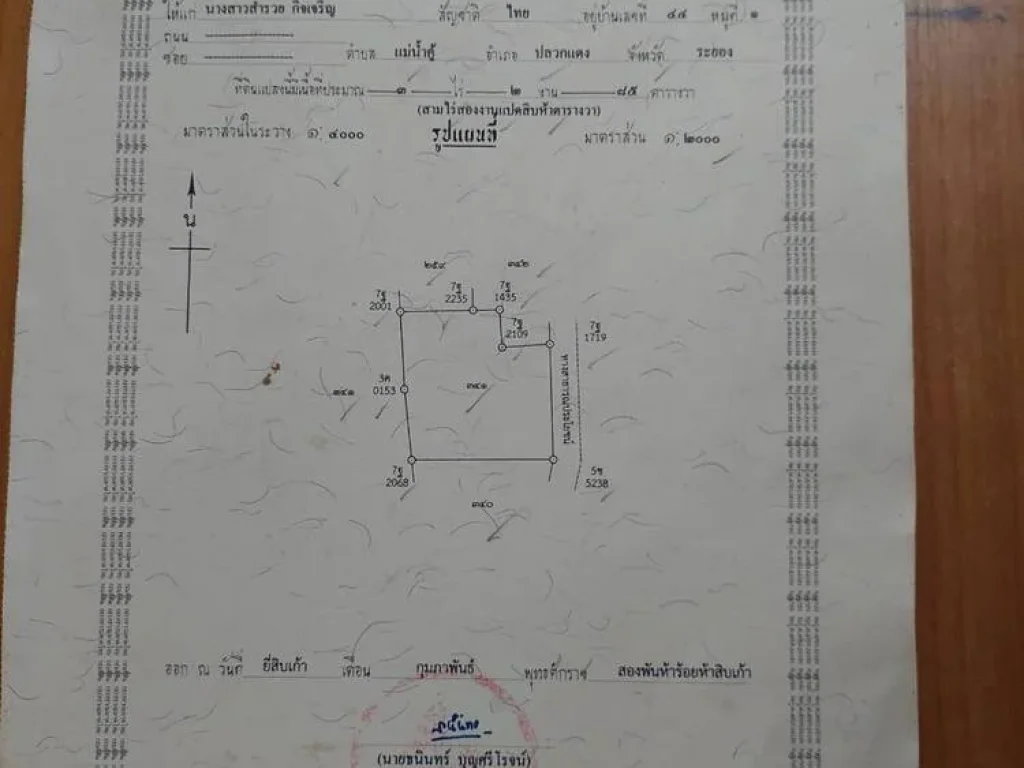 ให้แก่ นางสาวสำรวย กิจเจริญ สัญชาติ ไทย อยู่บ้านเลขที่ ๔๔ หมู่ที่ ๑
ถนน
ซอย ตำบล แม่น้ำคู้ อำเภอ ปลวกแดง จังหวัด ระยอง
ที่ดินแปลงนี้มีเนื้อที่ประมาณ ๓ ไร่ ๒ งาน ๘๕ ตารางวา
(สามไร่สองงานแปดสิบห้าตารางวา)
มาตราส่วนในระวาง ๑ : ๔๐๐๐ รูปแผนที่ มาตราส่วน ๑ : ๒๐๐๐
น
๒๕๙ ๓๔๒
7ฐ 2001
7ฐ 2235
7ฐ 1435
7ฐ 2109
7ฐ 1719
3ค 0153
๓๔๑
ทางสาธารณประโยชน์
7ฐ 2068
5ซ 5238
๓๔๐
ออก ณ วันที่ ยี่สิบเก้า เดือน กุมภาพันธ์ พุทธศักราช สองพันห้าร้อยห้าสิบเก้า
(นายชนินทร์ บุญศรีโรจน์)